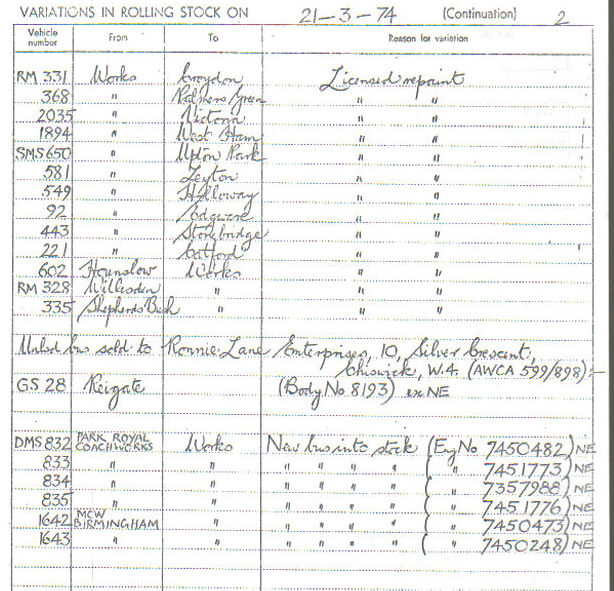 VARIATIONS IN ROLLING STOCK ON 21-3-74 (Continuation) 2
Vehicle number From To Reason for variation
RM 331 Works Croydon Licensed repaint
368 " Palmers Green " "
2035 " Victoria " "
1894 " West Ham " "
SMS 650 " Upton Park " "
581 " Leyton " "
549 " Holloway " "
92 " Edgware " "
443 " Stonebridge " "
221 " Catford " "
602 Hounslow Works " "
RM 328 Willesden " " "
335 Shepherds Bush " " "
Unlsd bus sold to Ronnie Lane Enterprises, 10, Silver Crescent,
Chiswick, W.4. (AWCA 599/898):-
GS 28 Reigate (Body No 8193) ex NE
DMS 832 PARK ROYAL COACHWORKS Works New bus into stock (Eng No 7450482) NE
833 " " " " " " ( " 7451773) NE
834 " " " " " " ( " 7357988) NE
835 " " " " " " ( " 7451776) NE
1642 MCW BIRMINGHAM " " " " " ( " 7450473) NE
1643 " " " " " " ( " 7450248) NE